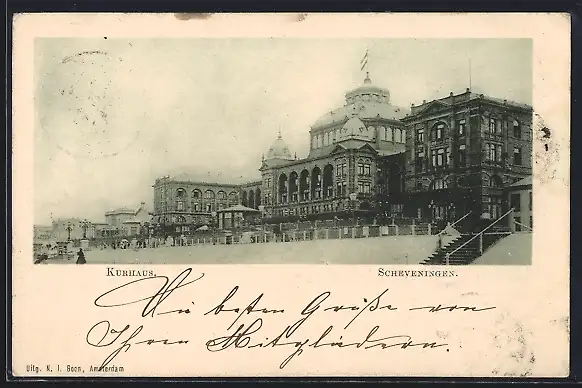 KURHAUS. SCHEVENINGEN.
Die besten Grüße von
Ihren Mitgliedern.
Uitg. N. J. Boon, Amsterdam